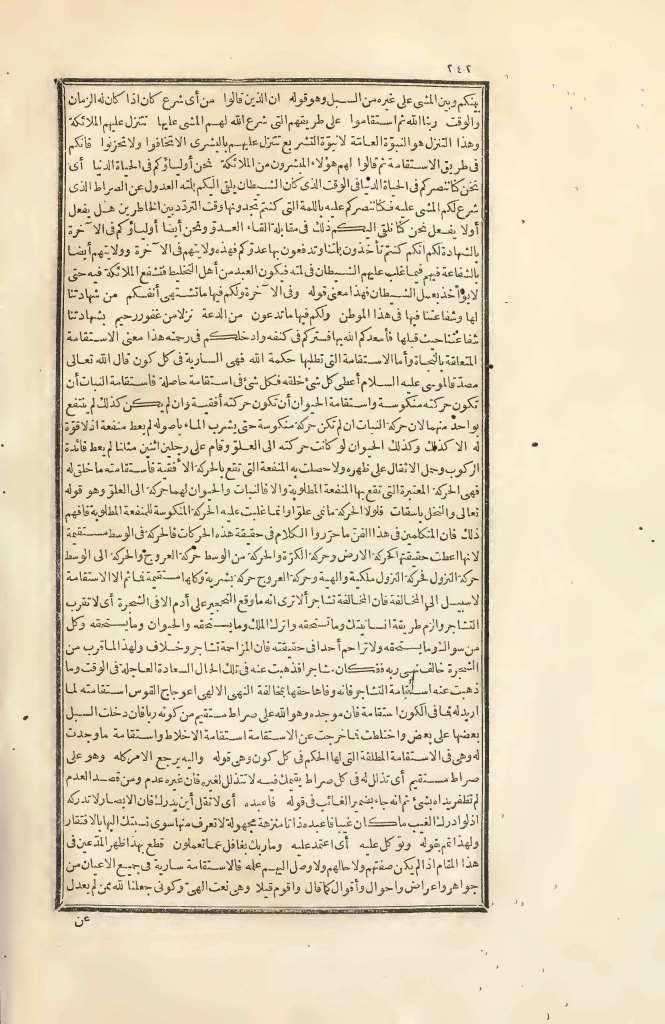 ٢٤٢
بينكم وبين المشي على غيره من السبل وهو قوله ان الذين قالوا من أى شرع كان اذا كان له الزمان
والوقت ربنا الله ثم استقاموا على طريقهم التى شرع الله لهم المشى عليها تتنزل عليهم الملائكة
وهذا التنزل هو النبوّة العامّة لا نبوّة التشريع تتنزل عليهم بالبشرى ألا تخافوا ولا تحزنوا فانكم
فى طريق الاستقامة ثم قالوا لهم هؤلاء المبشرون من الملائكة نحن أولياؤكم فى الحياة الدنيا أى
نحن كنا ننصركم فى الحياة الدنيا فى الوقت الذى كان الشيطان يلقى اليكم بلمته العدول عن الصراط الذى
شرع لكم المشى عليه فكنا ننصركم عليه باللمة التى كنتم تجدونها وقت التردّد بين الخاطرين هل يفعل
أو لا يفعل نحن كنا نلقى اليكم ذلك فى مقابلة القاء العدوّ ونحن أيضا أولياؤكم فى الآخرة
بالشهادة لكم انكم كنتم تأخذون بلمتنا وتدفعون بها عدوّكم فهذه ولايتهم فى الآخرة وولايتهم أيضا
بالشفاعة فيهم فيما غلب عليهم الشيطان فى لمته فيكون العبد من أهل التخليط فتشفع الملائكة فيه حتى
لا يؤاخذ بعمل الشيطان فهذا معنى قوله وفى الآخرة ولكم فيها ما تشتهى أنفسكم من شهادتنا
لها وشفاعتنا فيها فى هذا الموطن ولكم فيها ما تدعون من الدعة نزلا من غفور رحيم بشهادتنا
شفاعتنا حيث قبلها فأسعدكم الله بها فستركم فى كنفه وادخلكم فى رحمته هذا معنى الاستقامة
المتعلقة بالنجاة وأما الاستقامة التى تطلبها حكمة الله فهى السارية فى كل كون قال الله تعالى
مصدّقا لموسى عليه السلام أعطى كل شئ خلقه فكل شئ فى استقامة حاصلة فاستقامة النبات أن
تكون حركته منكوسة واستقامة الحيوان أن تكون حركته أفقية وان لم يكن كذلك لم ينتفع
بواحد منهما لان حركة النبات ان لم تكن حركة منكوسة حتى يشرب الماء بأصوله لم يعط منفعة اذ لا قوّة
له الا كذلك وكذلك الحيوان لو كانت حركته الى العلوّ وقام على رجلين اثنين مثلنا لم يعط فائدة
الركوب وحمل الاثقال على ظهره ولا حصلت به المنفعة التى تقع بالحركة الأفقية فاستقامته ما خلق له
فهى الحركة المعتبرة التى تقع بها المنفعة المطلوبة والا فالنبات والحيوان لهما حركة الى العلوّ وهو قوله
تعالى والنخل باسقات فلولا الحركة ما نمى علوّا وانما غلبت عليه الحركة المنكوسة للمنفعة المطلوبة فافهم
ذلك فان المتكلمين فى هذا الفنّ ما حرّروا الكلام فى حقيقة هذه الحركات فالحركة فى الوسط مستقيمة
لانها اعطت حقيقتها كحركة الارض وحركة الكرة والحركة من الوسط حركة العروج والحركة الى الوسط
حركة النزول فحركة النزول ملكية والهية وحركة العروج حركة بشرية وكلها مستقيمة فما ثم الا الاستقامة
لا سبيل الى المخالفة فان المخالفة تشاجر ألا ترى انه ما وقع التحجير على آدم الا فى الشجرة أى لا تقرب
التشاجر والزم طريقة انسانيتك وما تستحقه واترك الملك وما يستحقه والحيوان وما يستحقه وكل
من سواك وما يستحقه ولا تزاحم أحدا فى حقيقته فان المزاحمة تشاجر وخلاف ولهذا لما قرب من
الشجرة خالف نهى ربه فكان مشاجرا فذهبت عنه فى تلك الحال السعادة العاجلة فى الوقت وما
ذهبت عنه استقامة التشاجر فانه وفاها حقها بمخالفة النهى الالهى اعوجاج القوس استقامته لما
اريد له فما فى الكون الا استقامة فان موجده وهو الله على صراط مستقيم من كونه ربا فان دخلت السبل
بعضها على بعض واختلطت فما خرجت عن الاستقامة استقامة الاختلاط واستقامة ما وجدت
له وهى فى الاستقامة المطلقة التى لها الحكم فى كل كون وهى قوله واليه يرجع الامر كله وهو على
صراط مستقيم أى تذلل له فى كل صراط يقيمك فيه لا تتذلل لغيره فان غيره عدم ومن قصد العدم
لم تظفر يداه بشئ ثم انه جاء بضمير الغائب فى قوله فاعبده أى لا تقل أين يدرك فان الابصار لا تدركه
اذ لو ادرك الغيب ما كان غيبا فاعبده ذاتا منزهة مجهولة لا تعرف منها سوى نسبتك اليها بالافتقار
ولهذا تمم بقوله وتوكل عليه أى اعتمد عليه وما ربك بغافل عما تعملون قطع بهذا ظهر المدّعين فى
هذا المقام اذ لم يكن صفتهم ولا حالهم ولا وصل اليهم علمه فالاستقامة سارية فى جميع الاعيان من
جواهر واعراض واحوال وأقوال كما قال واقوم قيلا وهى نعت الهىّ وكونى جعلنا لله ممن لم يعدل
عن